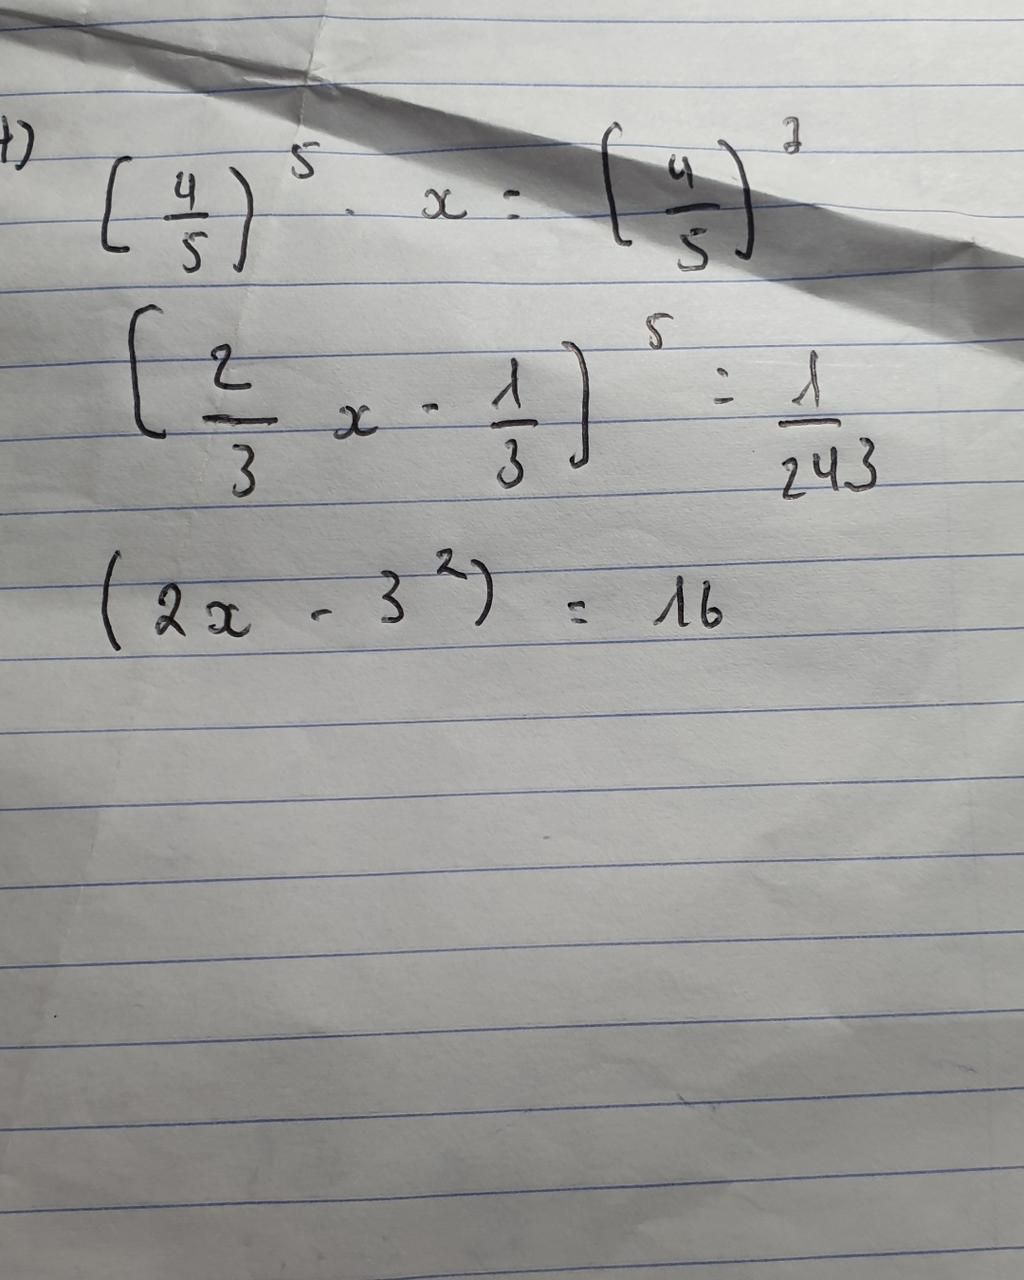 (4/5)^5 . x = (4/5)
(2/3 x - 1/3)^5 = 1/243
(2x - 3^2) = 16